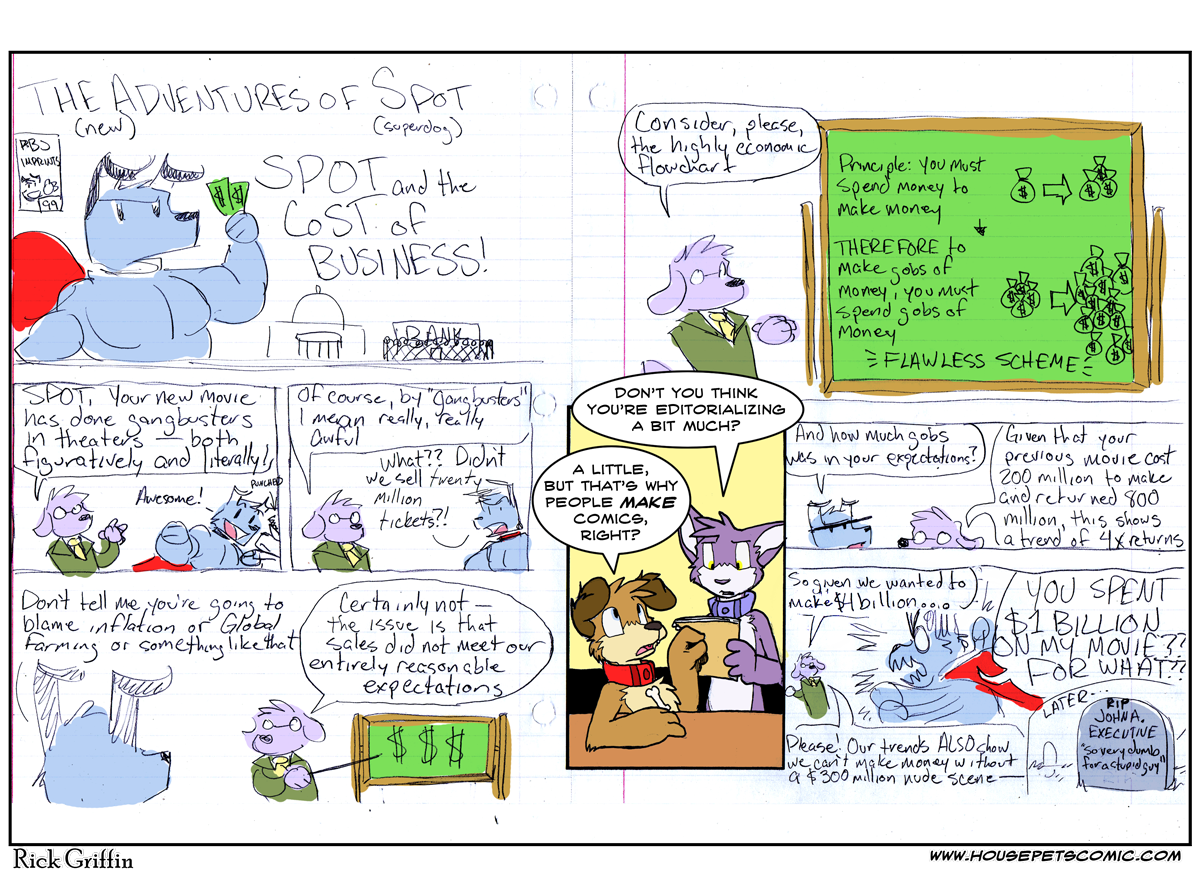 THE ADVENTURES OF SPOT
(new)
(superdog)
IMPRINTS
199
SPOT and the
COST of
BUSINESS!
BANK
SPOT, Your new movie
has done gangbusters
in theaters — both
figuratively and literally!
Awesome!
PUNCHED
Of course, by "gangbusters"
I mean really, really
awful
What?? Didn't
we sell twenty
million
tickets?!
Don't tell me you're going to
blame inflation or Global
Farming or something like that
Certainly not —
the issue is that
sales did not meet our
entirely reasonable
expectations
$ $ $
Consider, please,
the highly economic
flowchart
Principle: you must
spend money to
make money
THEREFORE to
make gobs of
money, you must
spend gobs of
money
FLAWLESS SCHEME
DON'T YOU THINK
YOU'RE EDITORIALIZING
A BIT MUCH?
A LITTLE,
BUT THAT'S WHY
PEOPLE MAKE
COMICS,
RIGHT?
And how much gobs
was in your expectations?
Given that your
previous movie cost
200 million to make
and returned 800
million, this shows
a trend of 4x returns
So given we wanted to
make $1 billion....
YOU SPENT
$1 BILLION
ON MY MOVIE??
FOR WHAT??
Please! Our trends ALSO show
we can't make money without
a $300 million nude scene —
LATER...
RIP
JOHN A.
EXECUTIVE
"so very dumb,
for a stupid guy"
Rick Griffin
WWW.HOUSEPETSCOMIC.COM